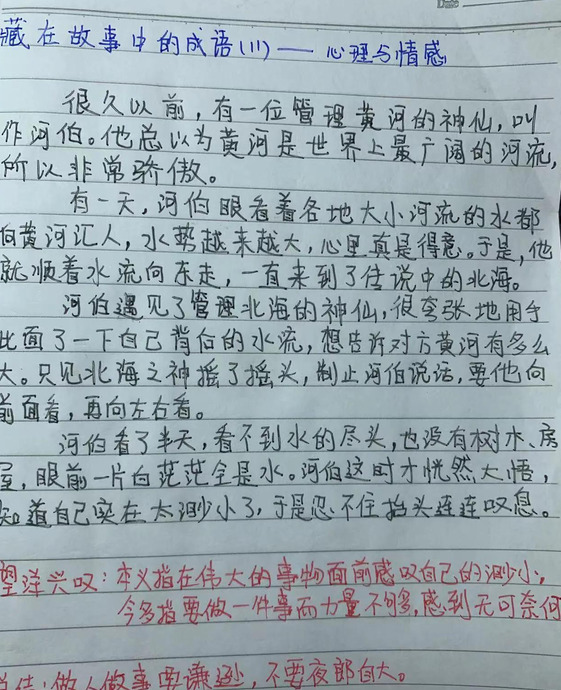 Date
藏在故事中的成语(11)——心理与情感
很久以前,有一位管理黄河的神仙,叫
作河伯。他总以为黄河是世界上最广阔的河流,
所以非常骄傲。
有一天,河伯眼看着各地大小河流的水都
向黄河汇人,水势越来越大,心里真是得意。于是,他
就顺着水流向东走,一直来到了传说中的北海。
河伯遇见了管理北海的神仙,很夸张地用手
比面了一下自己背后的水流,想告诉对方黄河有多么
大。只见北海之神摇了摇头,制止河伯说话,要他向
前面看,再向左右看。
河伯看了半天,看不到水的尽头,也没有树木、房
屋,眼前一片白茫茫全是水。河伯这时才恍然大悟,
知道自己实在太渺小了,于是忍不住抬头连连叹息。
望洋兴叹:本义指在伟大的事物面前感叹自己的渺小,
今多指要做一件事而力量不够,感到无可奈何
总结:做人做事要谦逊,不要夜郎自大。